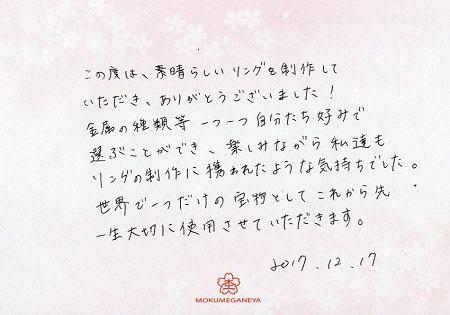 この度は、素晴らしいリングを制作して
いただき、ありがとうございました！
金属の種類等一つ一つ自分たち好みで
選ぶことができ、楽しみながら私達も
リングの制作に携われたような気持ちでした。
世界で一つだけの宝物としてこれから先
一生大切に使用させていただきます。
2017.12.17
MOKUMEGANEYA